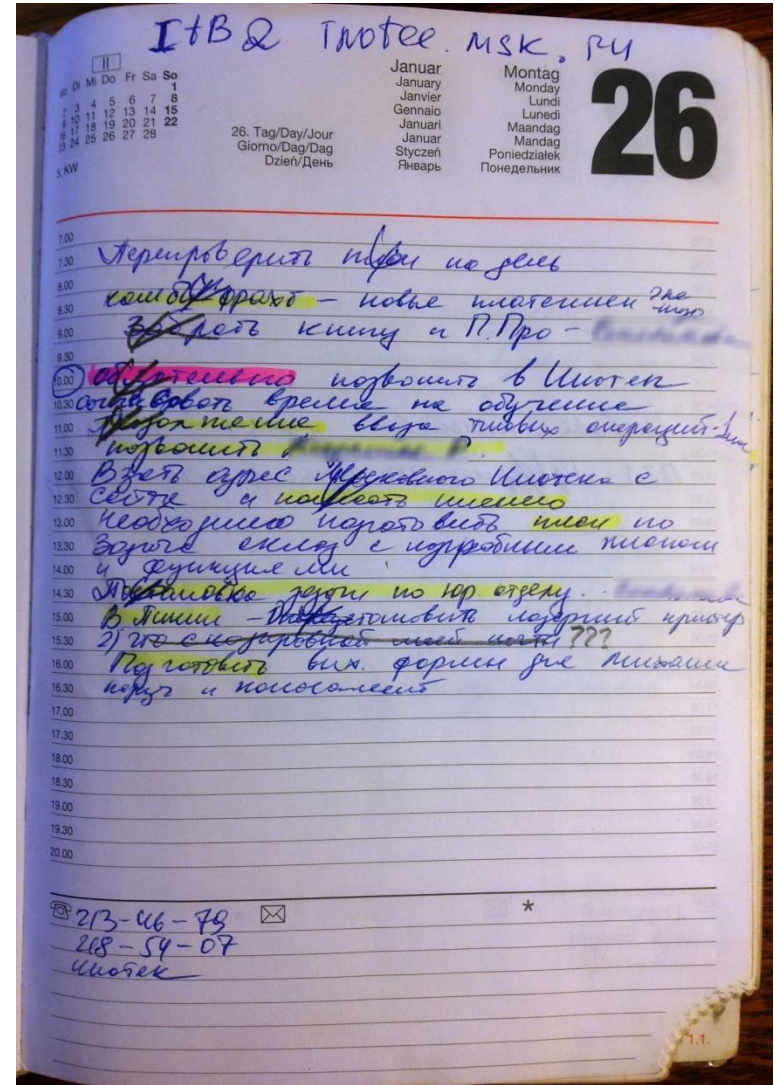 I + B Q Inotec.msk.ru
II
Di Mi Do Fr Sa So
1
2 3 4 5 6 7 8
9 10 11 12 13 14 15
16 17 18 19 20 21 22
23 24 25 26 27 28
5. KW
26. Tag/Day/Jour
Giorno/Dag/Dag
Dzień/День
Januar
January
Janvier
Gennaio
Januari
Januar
Styczeń
Январь
Montag
Monday
Lundi
Lunedì
Maandag
Mandag
Poniedziałek
Понедельник
26
7.00
7.30 Перепроверить план на день
8.00
8.30 фрахт – новые платежки
9.00 Забрать книгу и П.Про –
9.30
10.00 обязательно позвонить в Инотек
10.30 согласовать время на обучение
11.00 Продолжение ввода типовых операций
11.30 позвонить
12.00 Взять адрес Московского Инотека с
12.30 Сайта и написать письмо
13.00 Необходимо подготовить план по
13.30 Задаче склад с подробным планом
14.00 и функциями
14.30 Постановка задачи по юр. отделу.
15.00 В Линии – установить лазерный принтер
15.30 2) что с моей почты ???
16.00 Подготовить вых. формы для
16.30 и
17.00
17.30
18.00
18.30
19.00
19.30
20.00
*
213-46-79
218-54-07
Инотек
1.1.